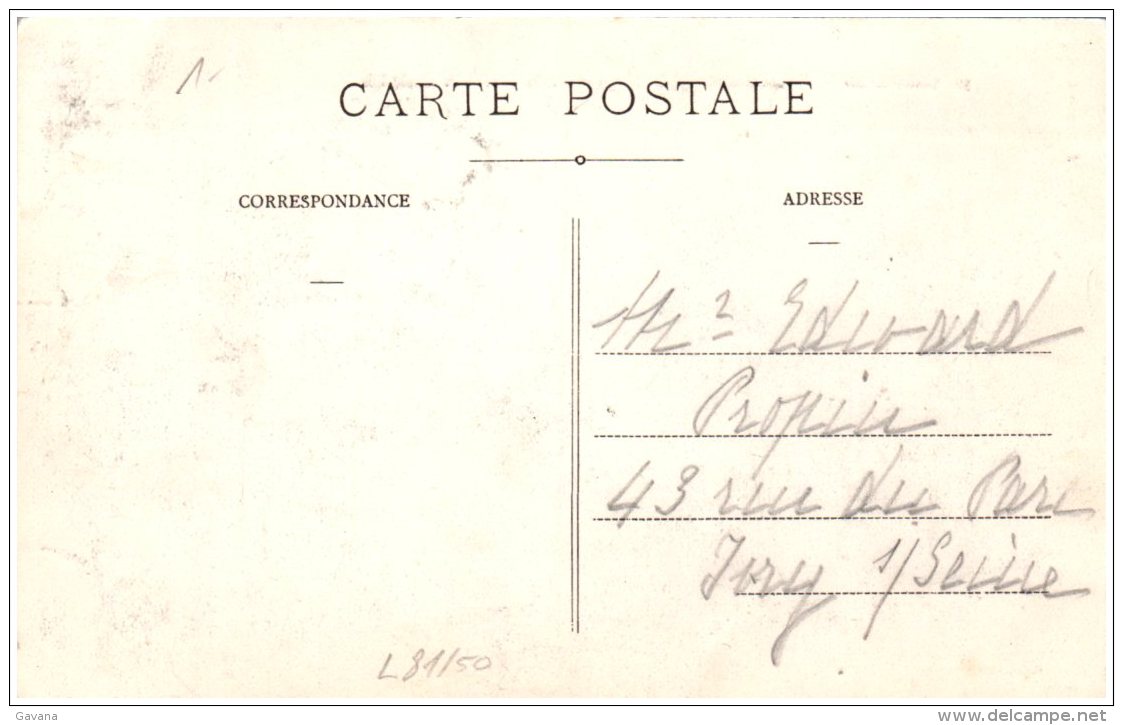 1-
CARTE POSTALE
CORRESPONDANCE
ADRESSE
Mr Edouard
Propin
43 rue du Parc
Ivry s/Seine
L81/50
Gavana
www.delcampe.net